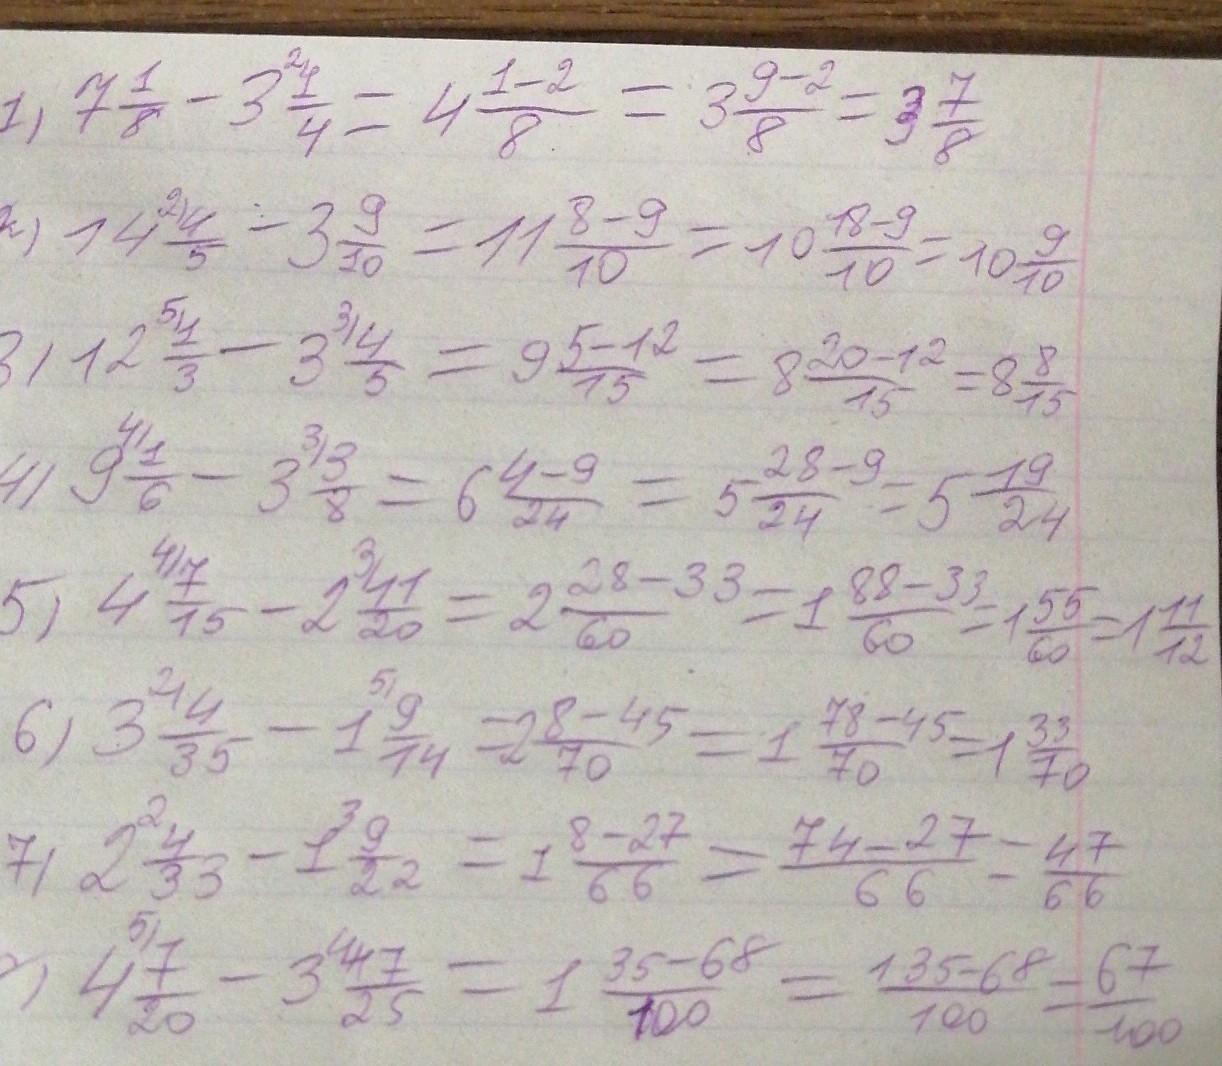 1) 7 1/8 - 3 2) 1/4 = 4 (1-2)/8 = 3 (9-2)/8 = 3 7/8
2) 14 2) 4/5 - 3 9/10 = 11 (8-9)/10 = 10 (18-9)/10 = 10 9/10
3) 12 5) 1/3 - 3 3) 4/5 = 9 (5-12)/15 = 8 (20-12)/15 = 8 8/15
4) 9 4) 1/6 - 3 3) 3/8 = 6 (4-9)/24 = 5 (28-9)/24 = 5 19/24
5) 4 4) 7/15 - 2 3) 11/20 = 2 (28-33)/60 = 1 (88-33)/60 = 1 55/60 = 1 11/12
6) 3 2) 4/35 - 1 5) 9/14 = 2 (8-45)/70 = 1 (78-45)/70 = 1 33/70
7) 2 2 4/33 - 1 3 9/22 = 1 (8-27)/66 = (74-27)/66 = 47/66
) 4 5) 7/20 - 3 4) 17/25 = 1 (35-68)/100 = (135-68)/100 = 67/100